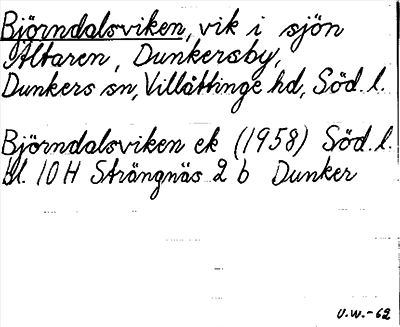 Björndalsviken, vik i sjön
Altaren, Dunkersby,
Dunkers sn, Villåttinge hd, Söd. l.
Björndalsviken ek (1958) Söd. l.
bl. 10 H Strängnäs 2 b Dunker
U.W.-62